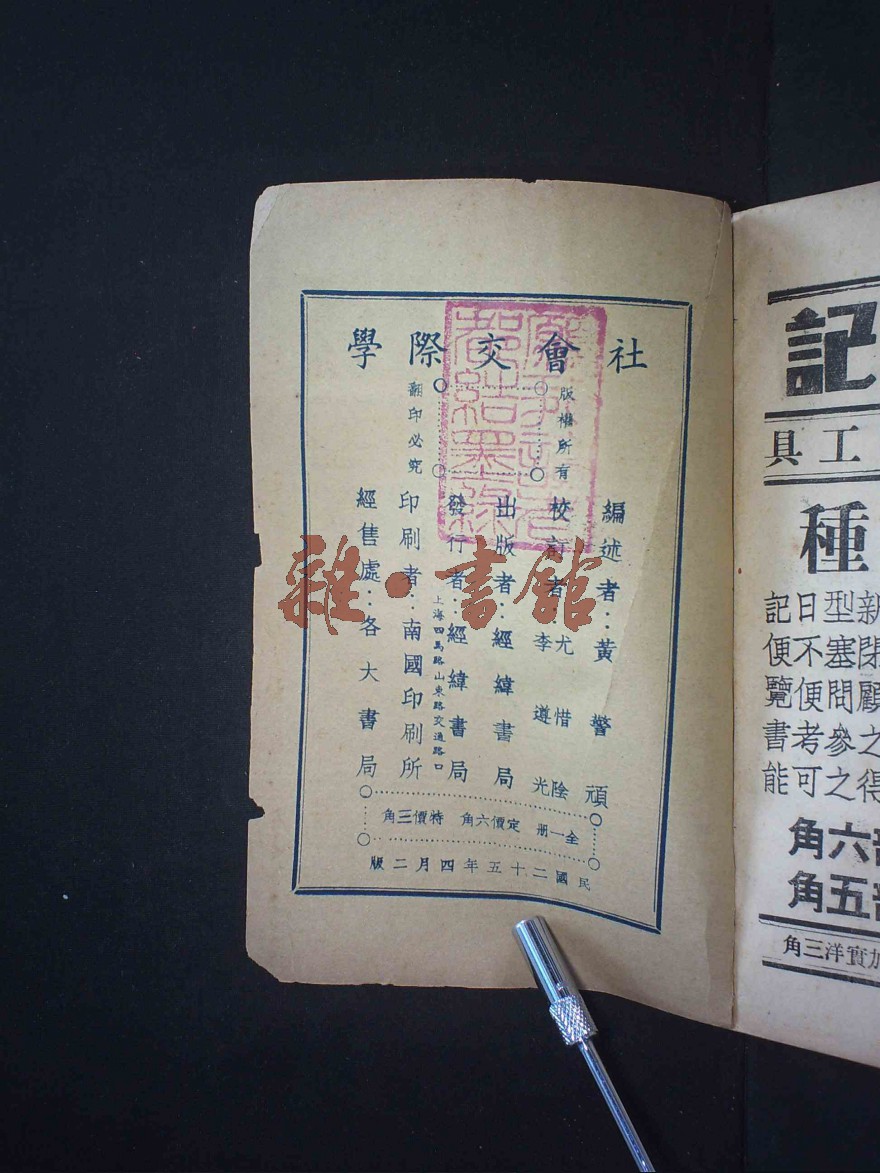 社會交際學
版權所有
翻印必究
編述者：黃警頑
校訂者：尤惜陰
李遵光
出版者：經緯書局
發行者：經緯書局
上海四馬路山東路交通路口
印刷者：南國印刷所
經售處：各大書局
全一册 定價六角 特價三角
民國二十五年四月二版
雜·書館
記
工具
種
新
型
日
記
閉塞不便
顧問便覽
之參考書
得之可能
六角
五角
加實洋三角